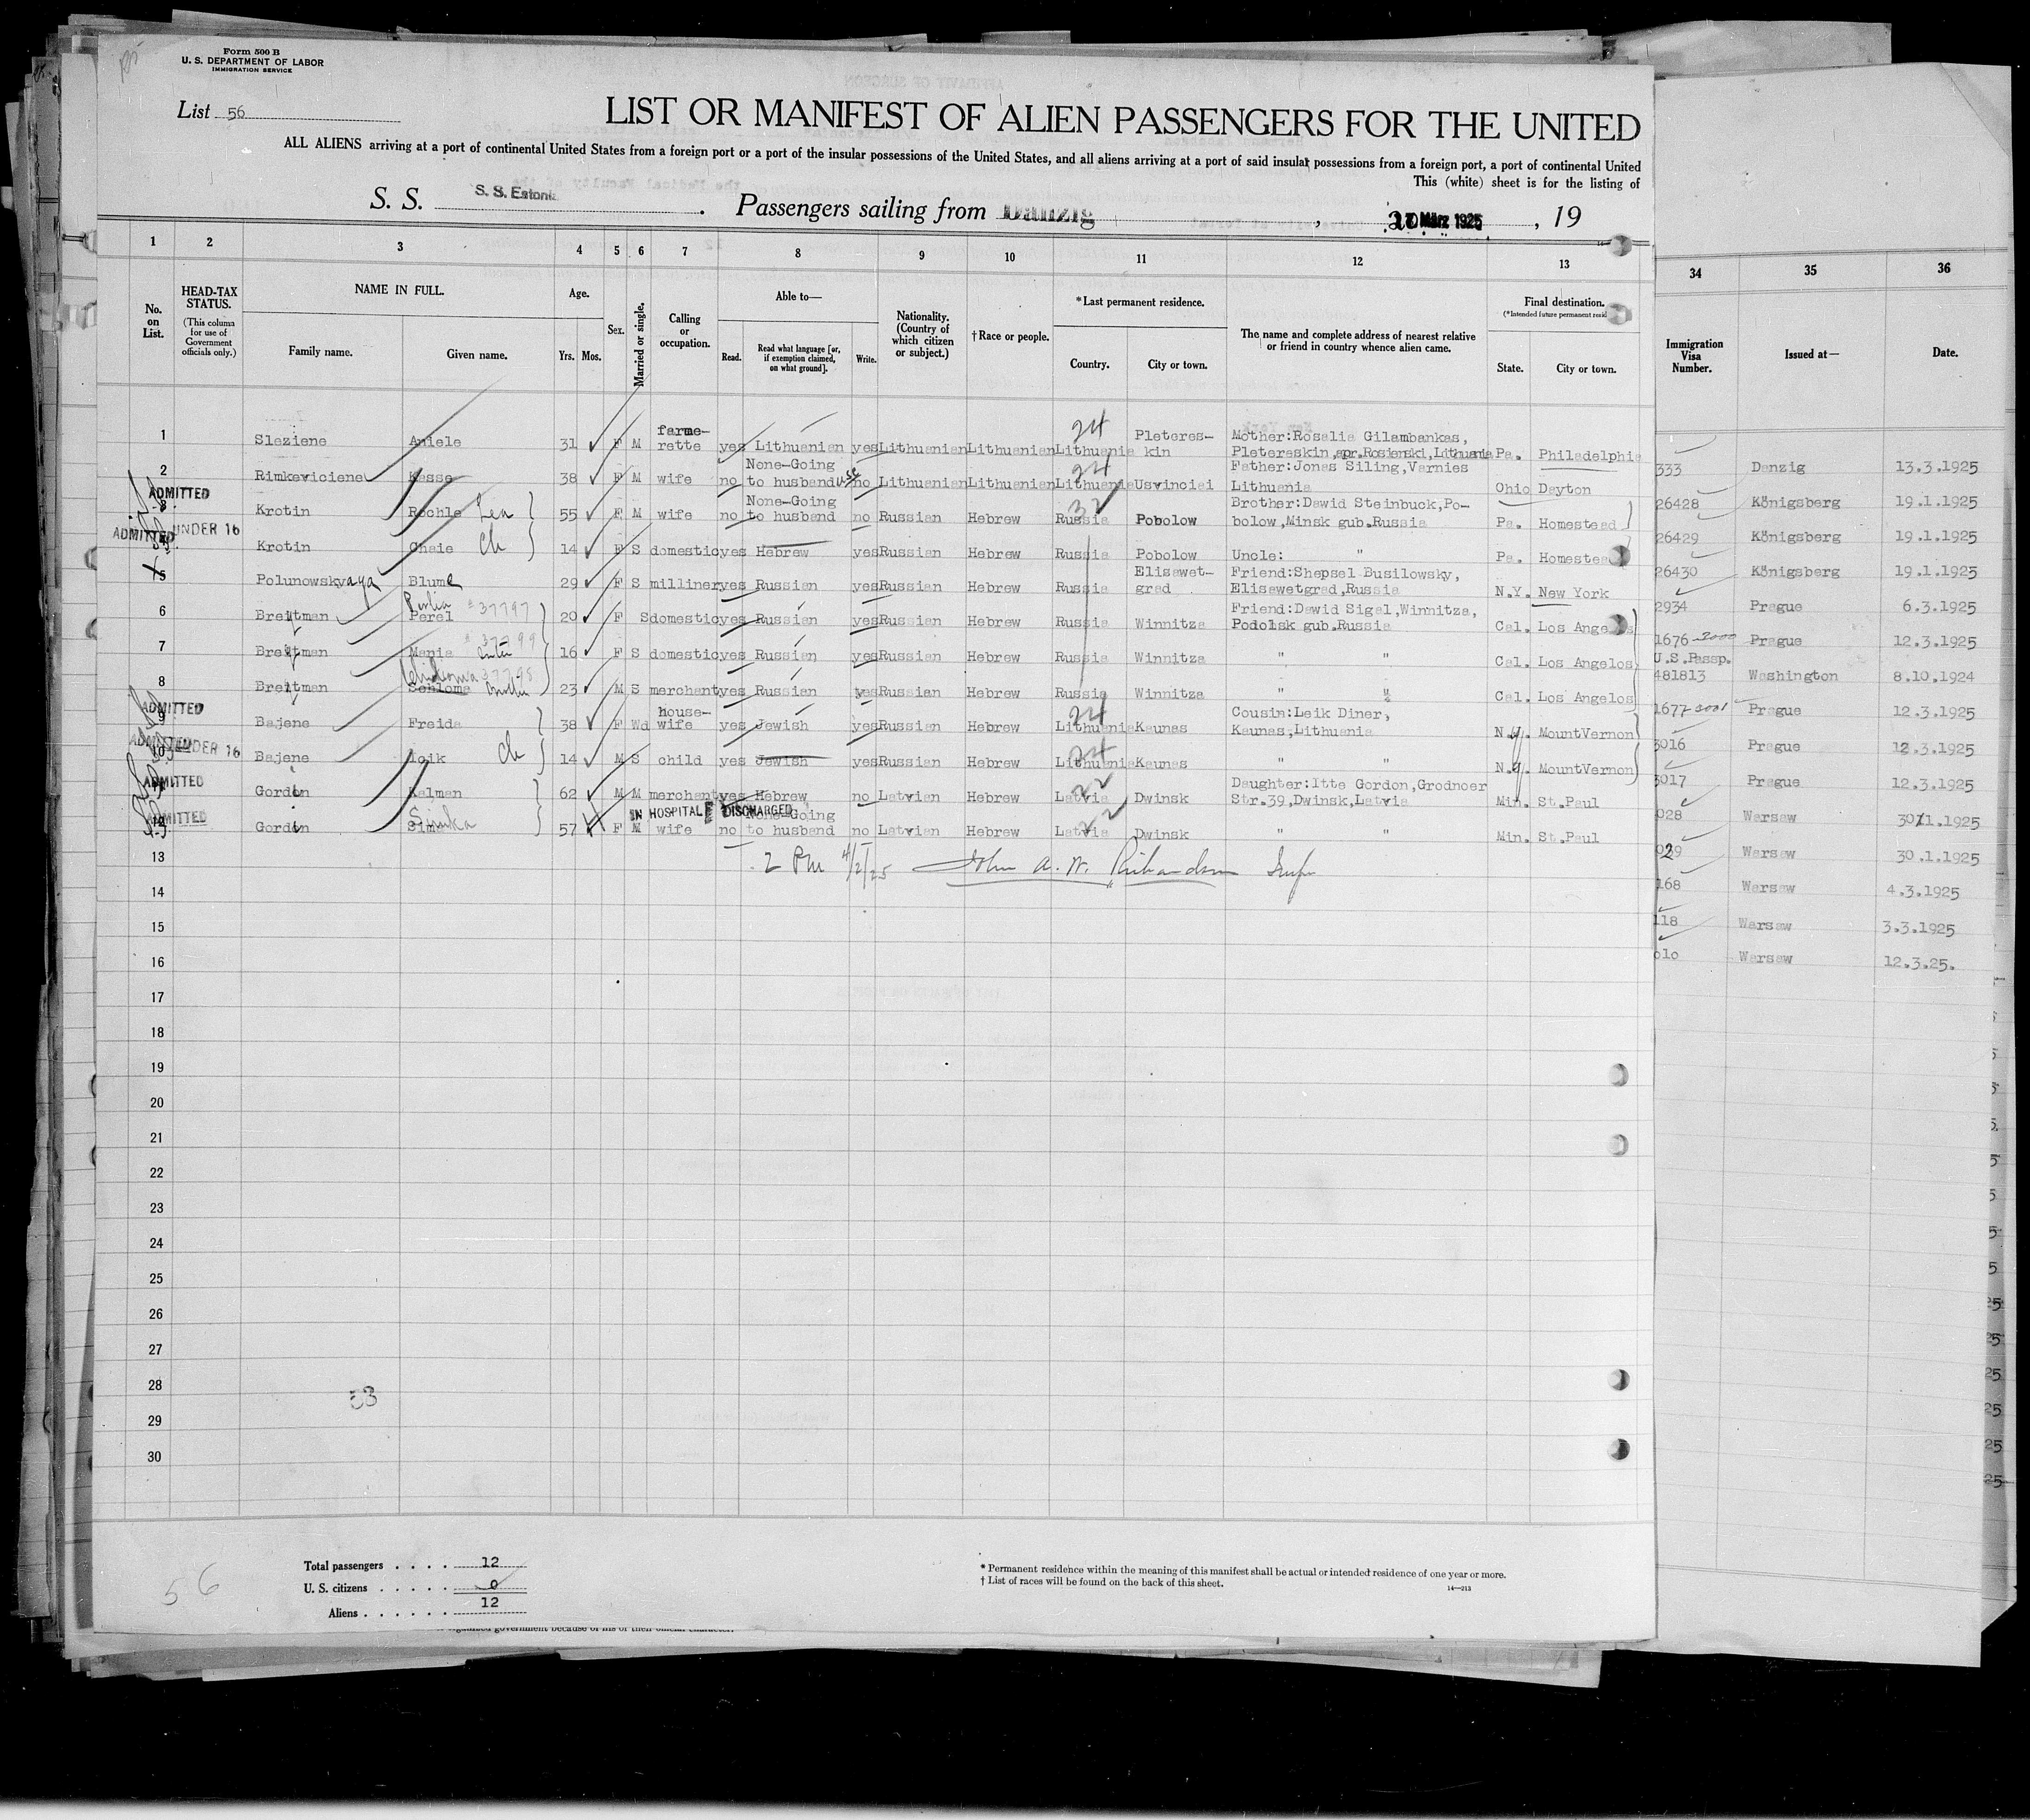 Form 500 B
U. S. DEPARTMENT OF LABOR
IMMIGRATION SERVICE
List 56
LIST OR MANIFEST OF ALIEN PASSENGERS FOR THE UNITED
ALL ALIENS arriving at a port of continental United States from a foreign port or a port of the insular possessions of the United States, and all aliens arriving at a port of said insular possessions from a foreign port, a port of continental United
This (white) sheet is for the listing of
S. S. S. S. Estonia. Passengers sailing from Danzig, März 1925, 19
1 2 3 4 5 6 7 8 9 10 11 12 13 34 35 36
No. on List.
HEAD-TAX STATUS.
(This column for use of Government officials only.)
NAME IN FULL.
Family name. Given name.
Age.
Yrs. Mos.
Sex.
Married or single.
Calling or occupation.
Able to—
Read. Read what language [or, if exemption claimed, on what ground]. Write.
Nationality. (Country of which citizen or subject.)
†Race or people.
*Last permanent residence.
Country. City or town.
The name and complete address of nearest relative or friend in country whence alien came.
Final destination.
State. City or town.
Immigration Visa Number.
Issued at—
Date.
1 Sleziene Aniele 31 F M farme-rette yes Lithuanian yes Lithuanian Lithuanian Lithuania 24 Pleteres-kin Mother:Rosalia Gilambankas, Pletereskin, Lithuania Pa. Philadelphia
2 Rimkeviciene Kasse 38 F M wife no None-Going to husband USC no Lithuanian Lithuanian Lithuania 24 Usvinciai Father:Jonas Siling,Varnies Lithuania Ohio Dayton
ADMITTED 3 Krotin Rochle Lea 55 F M wife no None-Going to husband no Russian Hebrew Russia 32 Pobolow Brother:Dawid Steinbuck,Po-bolow,Minsk gub.Russia Pa. Homestead
ADMITTED UNDER 16 Krotin Chaie Ch 14 F S domestic yes Hebrew yes Russian Hebrew Russia Pobolow Uncle: " Pa. Homestead
5 Polunowskyaya Blume 29 F S milliner yes Russian yes Russian Hebrew Russia Elisawet-grad Friend:Shepsel Busilowsky, Elisawetgrad,Russia N.Y. New York
6 Breitman Perel Perlia #37797 20 F S domestic yes Russian yes Russian Hebrew Russia Winnitza Friend:Dawid Sigel,Winnitza, Podolsk gub.Russia Cal. Los Angelos
7 Breitman Mania #37799 16 F S domestic yes Russian yes Russian Hebrew Russia Winnitza " " Cal. Los Angelos
8 Breitman Schloma 37798 23 M S merchant yes Russian yes Russian Hebrew Russia Winnitza " " Cal. Los Angelos
ADMITTED 9 Bajene Freida 38 F Wd house-wife yes Jewish yes Russian Hebrew Lithuania 24 Kaunas Cousin:Leik Diner, Kaunas,Lithuania N.Y. MountVernon
ADMITTED UNDER 16 10 Bajene Icik Ch 14 M S child yes Jewish yes Russian Hebrew Lithuania 24 Kaunas " " N.Y. MountVernon
ADMITTED Gordon Kalman 62 M M merchant yes Hebrew no Latvian Hebrew Latvia 22 Dwinsk Daughter:Itte Gordon,Grodnoer Str.39,Dwinsk,Latvia Min. St.Paul
IN HOSPITAL DISCHARGED
ADMITTED 12 Gordon Simka 57 F M wife no None-Going to husband no Latvian Hebrew Latvia 22 Dwinsk " " Min. St.Paul
13 2 PM 4/2/25 John A. W. Richardson
14
15
16
17
18
19
20
21
22
23
24
25
26
27
28
29
30
53
333 Danzig 13.3.1925
26428 Königsberg 19.1.1925
26429 Königsberg 19.1.1925
26430 Königsberg 19.1.1925
2934 Prague 6.3.1925
1676-2000 Prague 12.3.1925
U.S.Passp. 481813 Washington 8.10.1924
1677 2001 Prague 12.3.1925
3016 Prague 12.3.1925
3017 Prague 12.3.1925
028 Warsaw 30.1.1925
029 Warsaw 30.1.1925
168 Warsaw 4.3.1925
118 Warsaw 3.3.1925
Warsaw 12.3.25.
56
Total passengers . . . . 12
U. S. citizens . . . . . 0
Aliens . . . . . . 12
* Permanent residence within the meaning of this manifest shall be actual or intended residence of one year or more.
† List of races will be found on the back of this sheet.
14—213